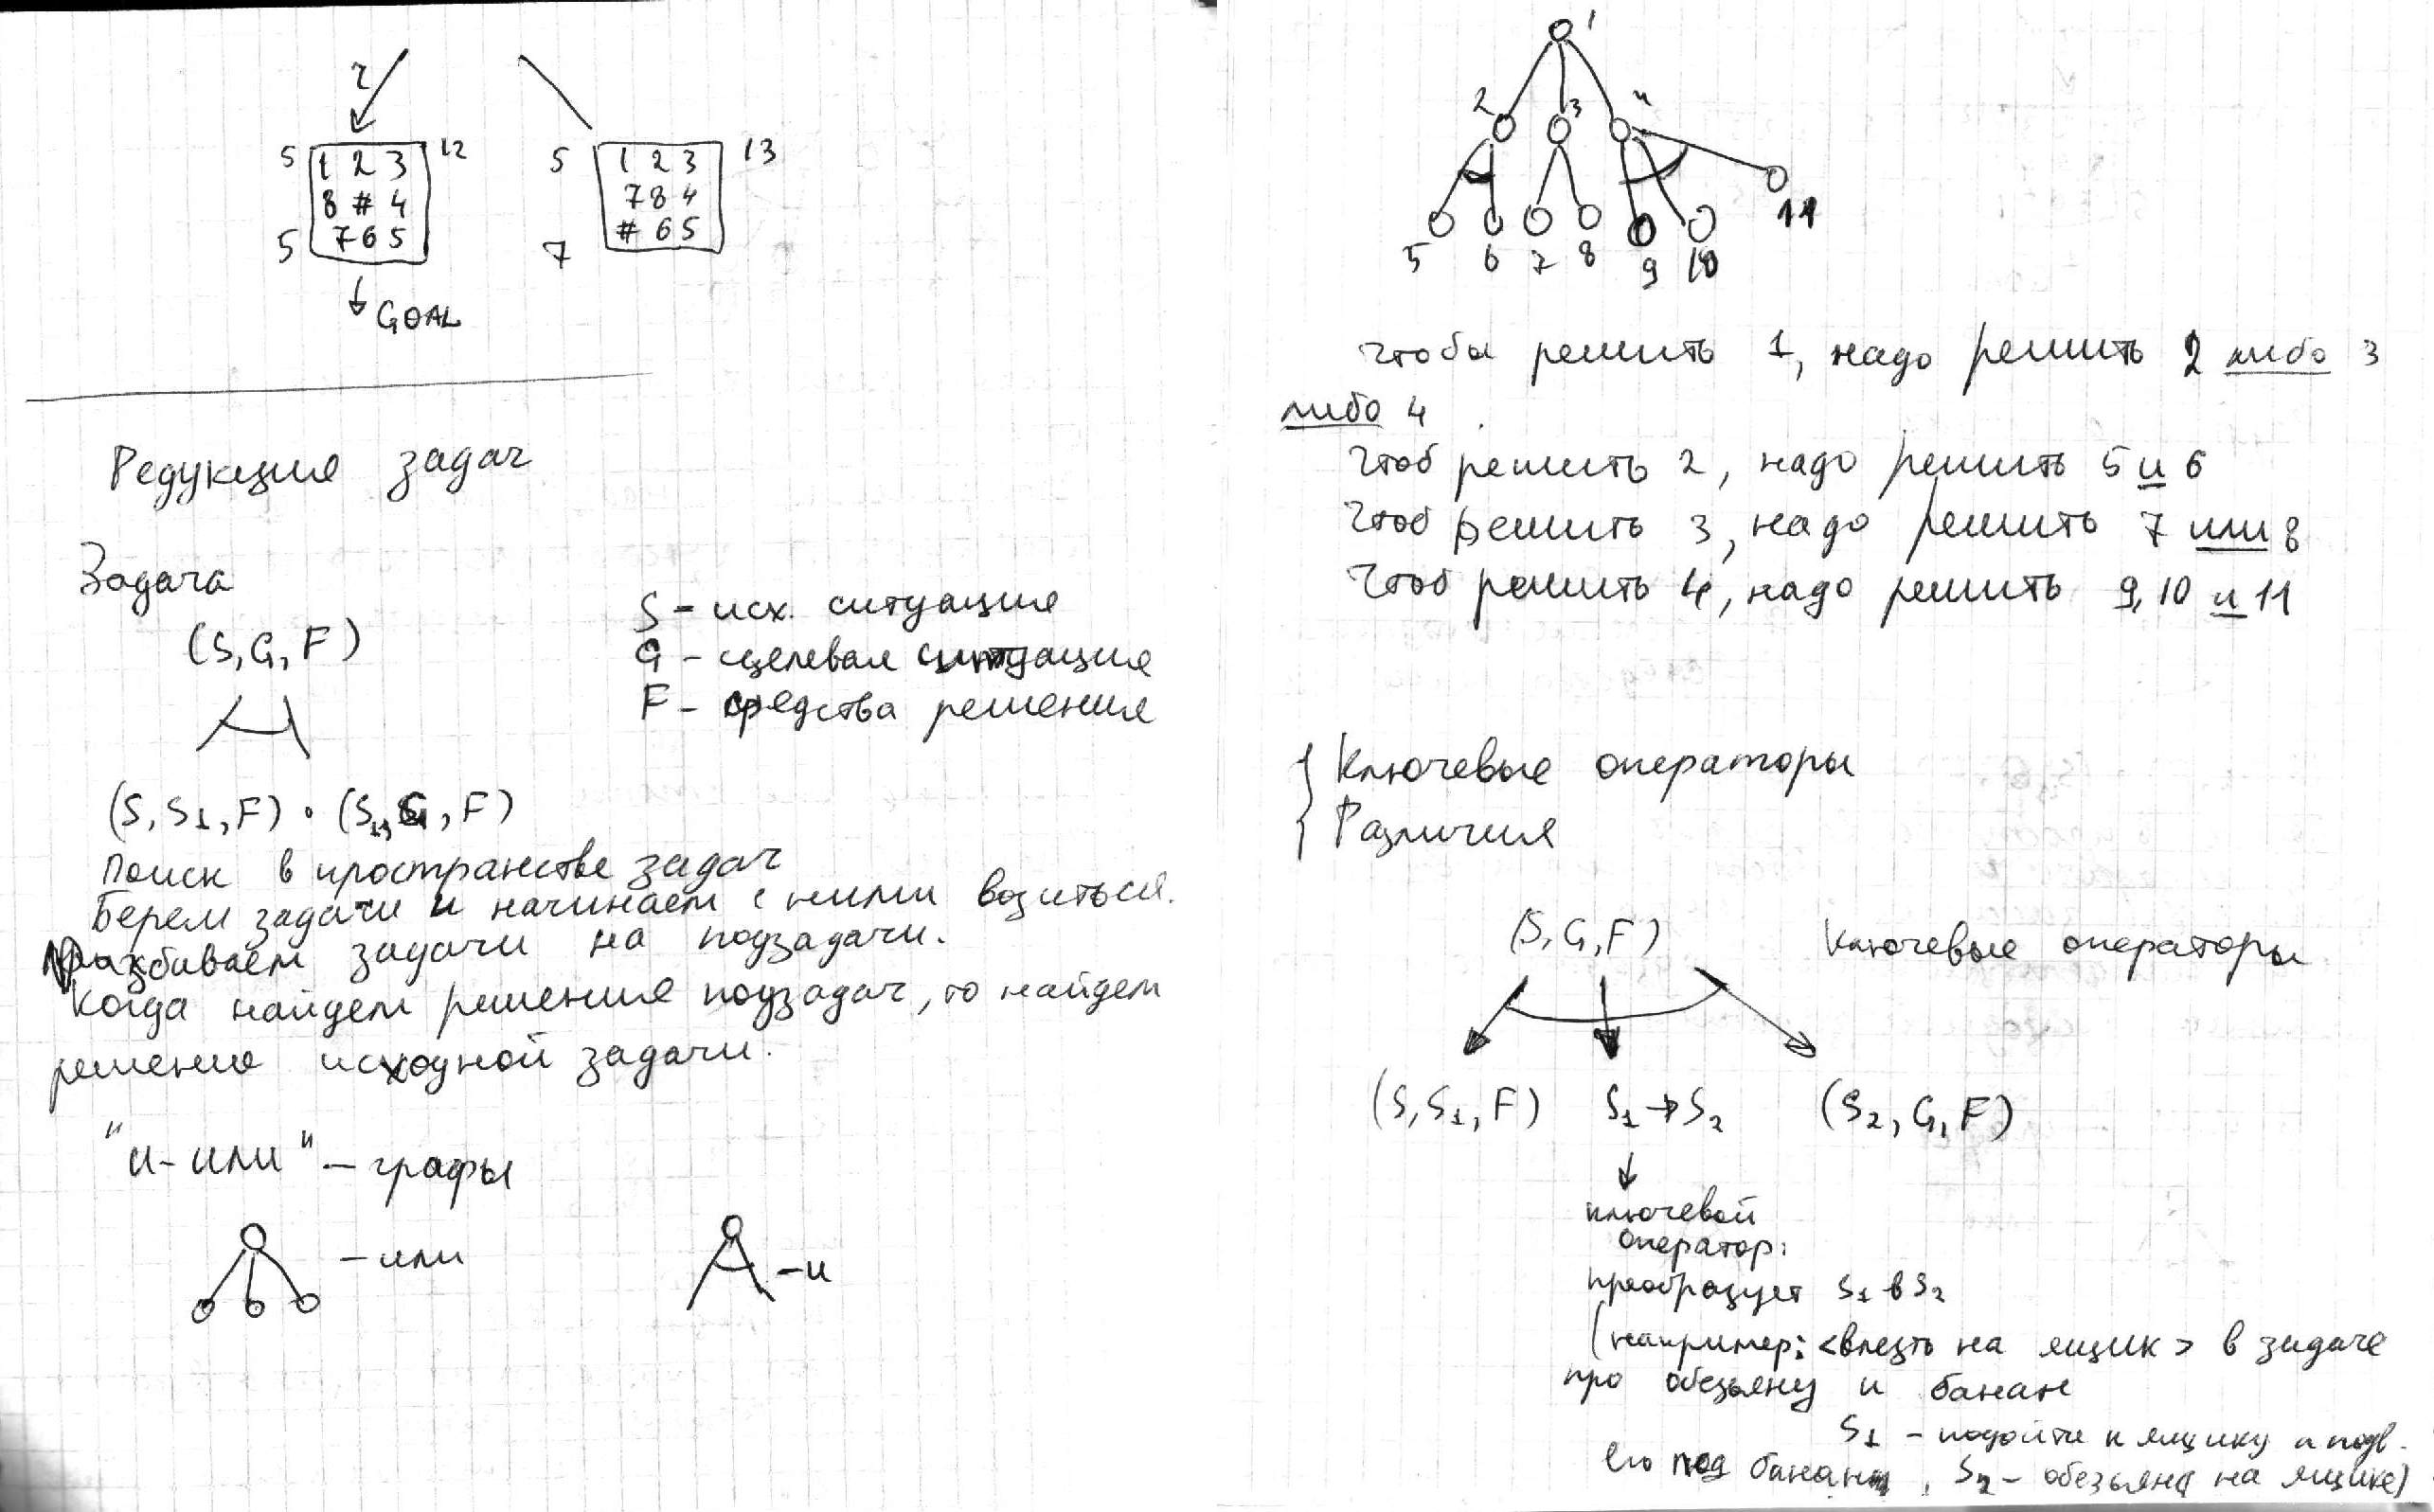 2
5 1 2 3 12
8 # 4
5 7 6 5
GOAL
5 1 2 3 13
7 8 4
7 # 6 5
Редукция задач
Задача
(S, G, F)
S - исх. ситуация
G - целевая ситуация
F - средства решения
(S, S₁, F) • (S₁, G, F)
Поиск в пространстве задач
Берем задачи и начинаем с ними возиться.
Разбиваем задачи на подзадачи.
Когда найдем решения подзадач, то найдем
решение исходной задачи.
"и-или" – графы
– или
– и
1
2 3 4
11
5 6 7 8 9 10
Чтобы решить 1, надо решить 2 либо 3
либо 4
Чтоб решить 2, надо решить 5 и 6
Чтоб решить 3, надо решить 7 или 8
Чтоб решить 4, надо решить 9, 10 и 11
{ Ключевые операторы
Различия
(S, G, F) Ключевые операторы
(S, S₁, F) S₁ → S₂ (S₂, G, F)
ключевой
оператор:
преобразует S₁ в S₂
(например: <влезть на ящик> в задаче
про обезьяну и банан
S₁ – подойти к ящику и подв.
его под банан, S₂ – обезьяна на ящике)